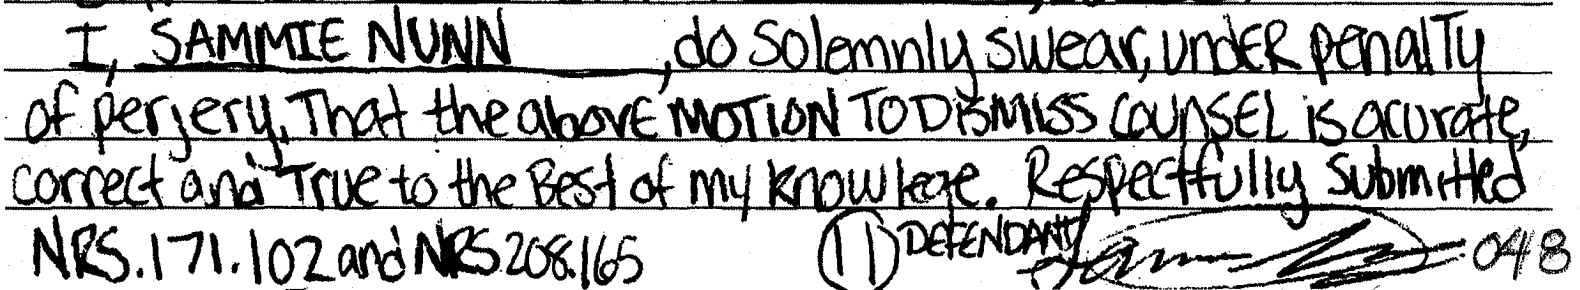 I, SAMMIE NUNN, do Solemnly swear, under penalty
of perjery, That the above MOTION TO DISMISS COUNSEL is acurate,
correct and True to the Best of my knowlege. Respectfully Submitted
NRS.171.102 and NRS 208.165 11 DEFENDANT 048